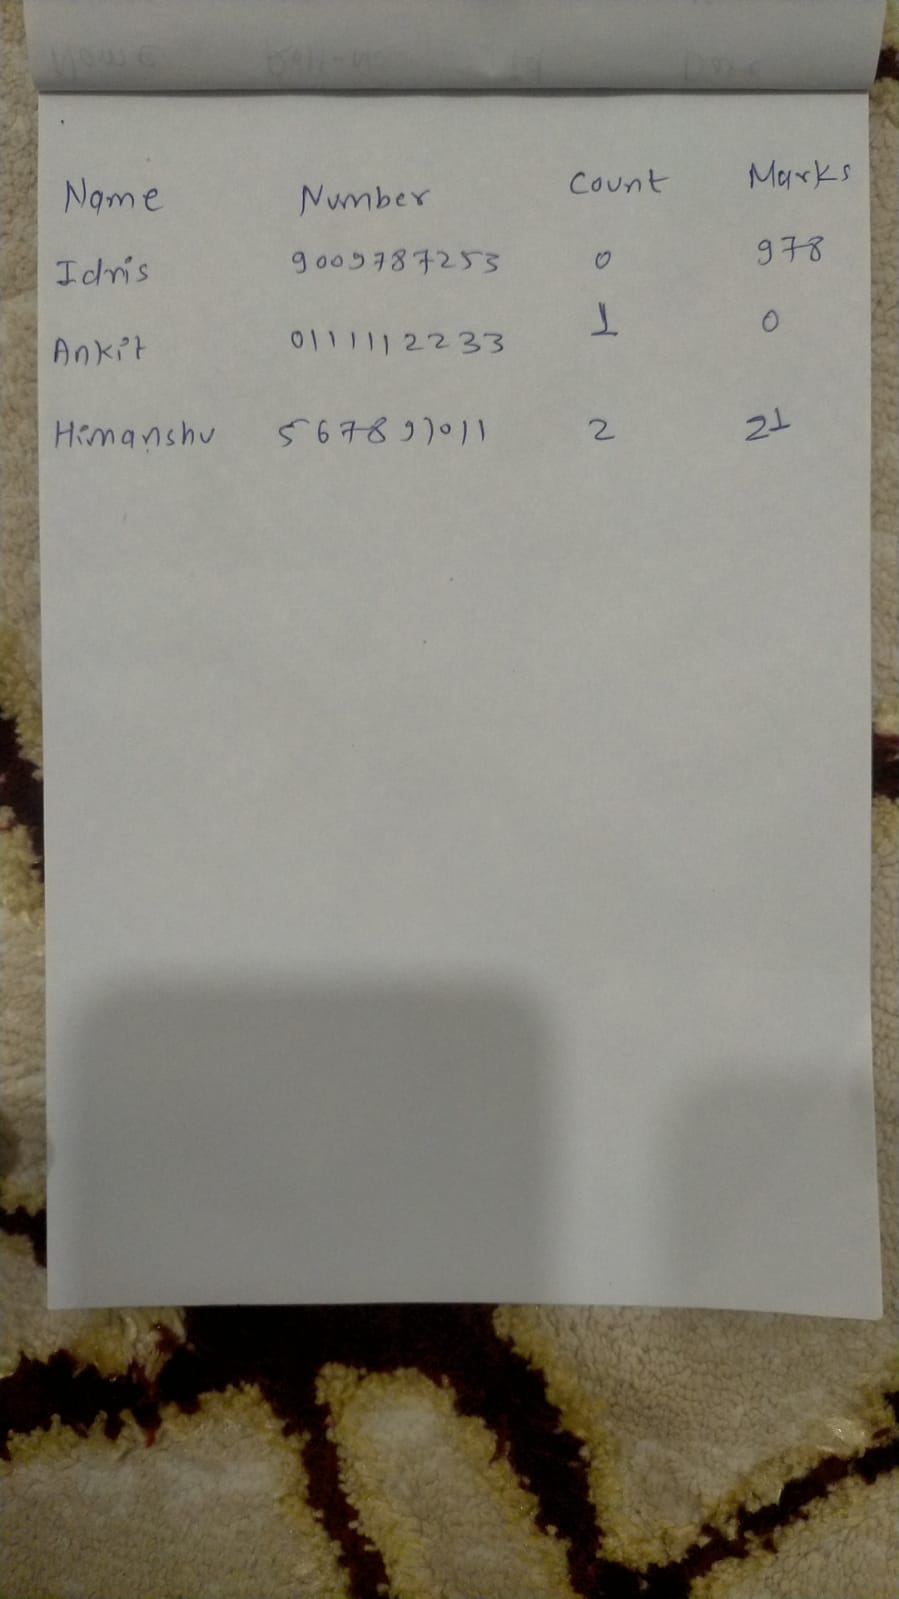 Name Number Count Marks
Idris 9009787253 0 978
Ankit 0111112233 1 0
Himanshu 2 21